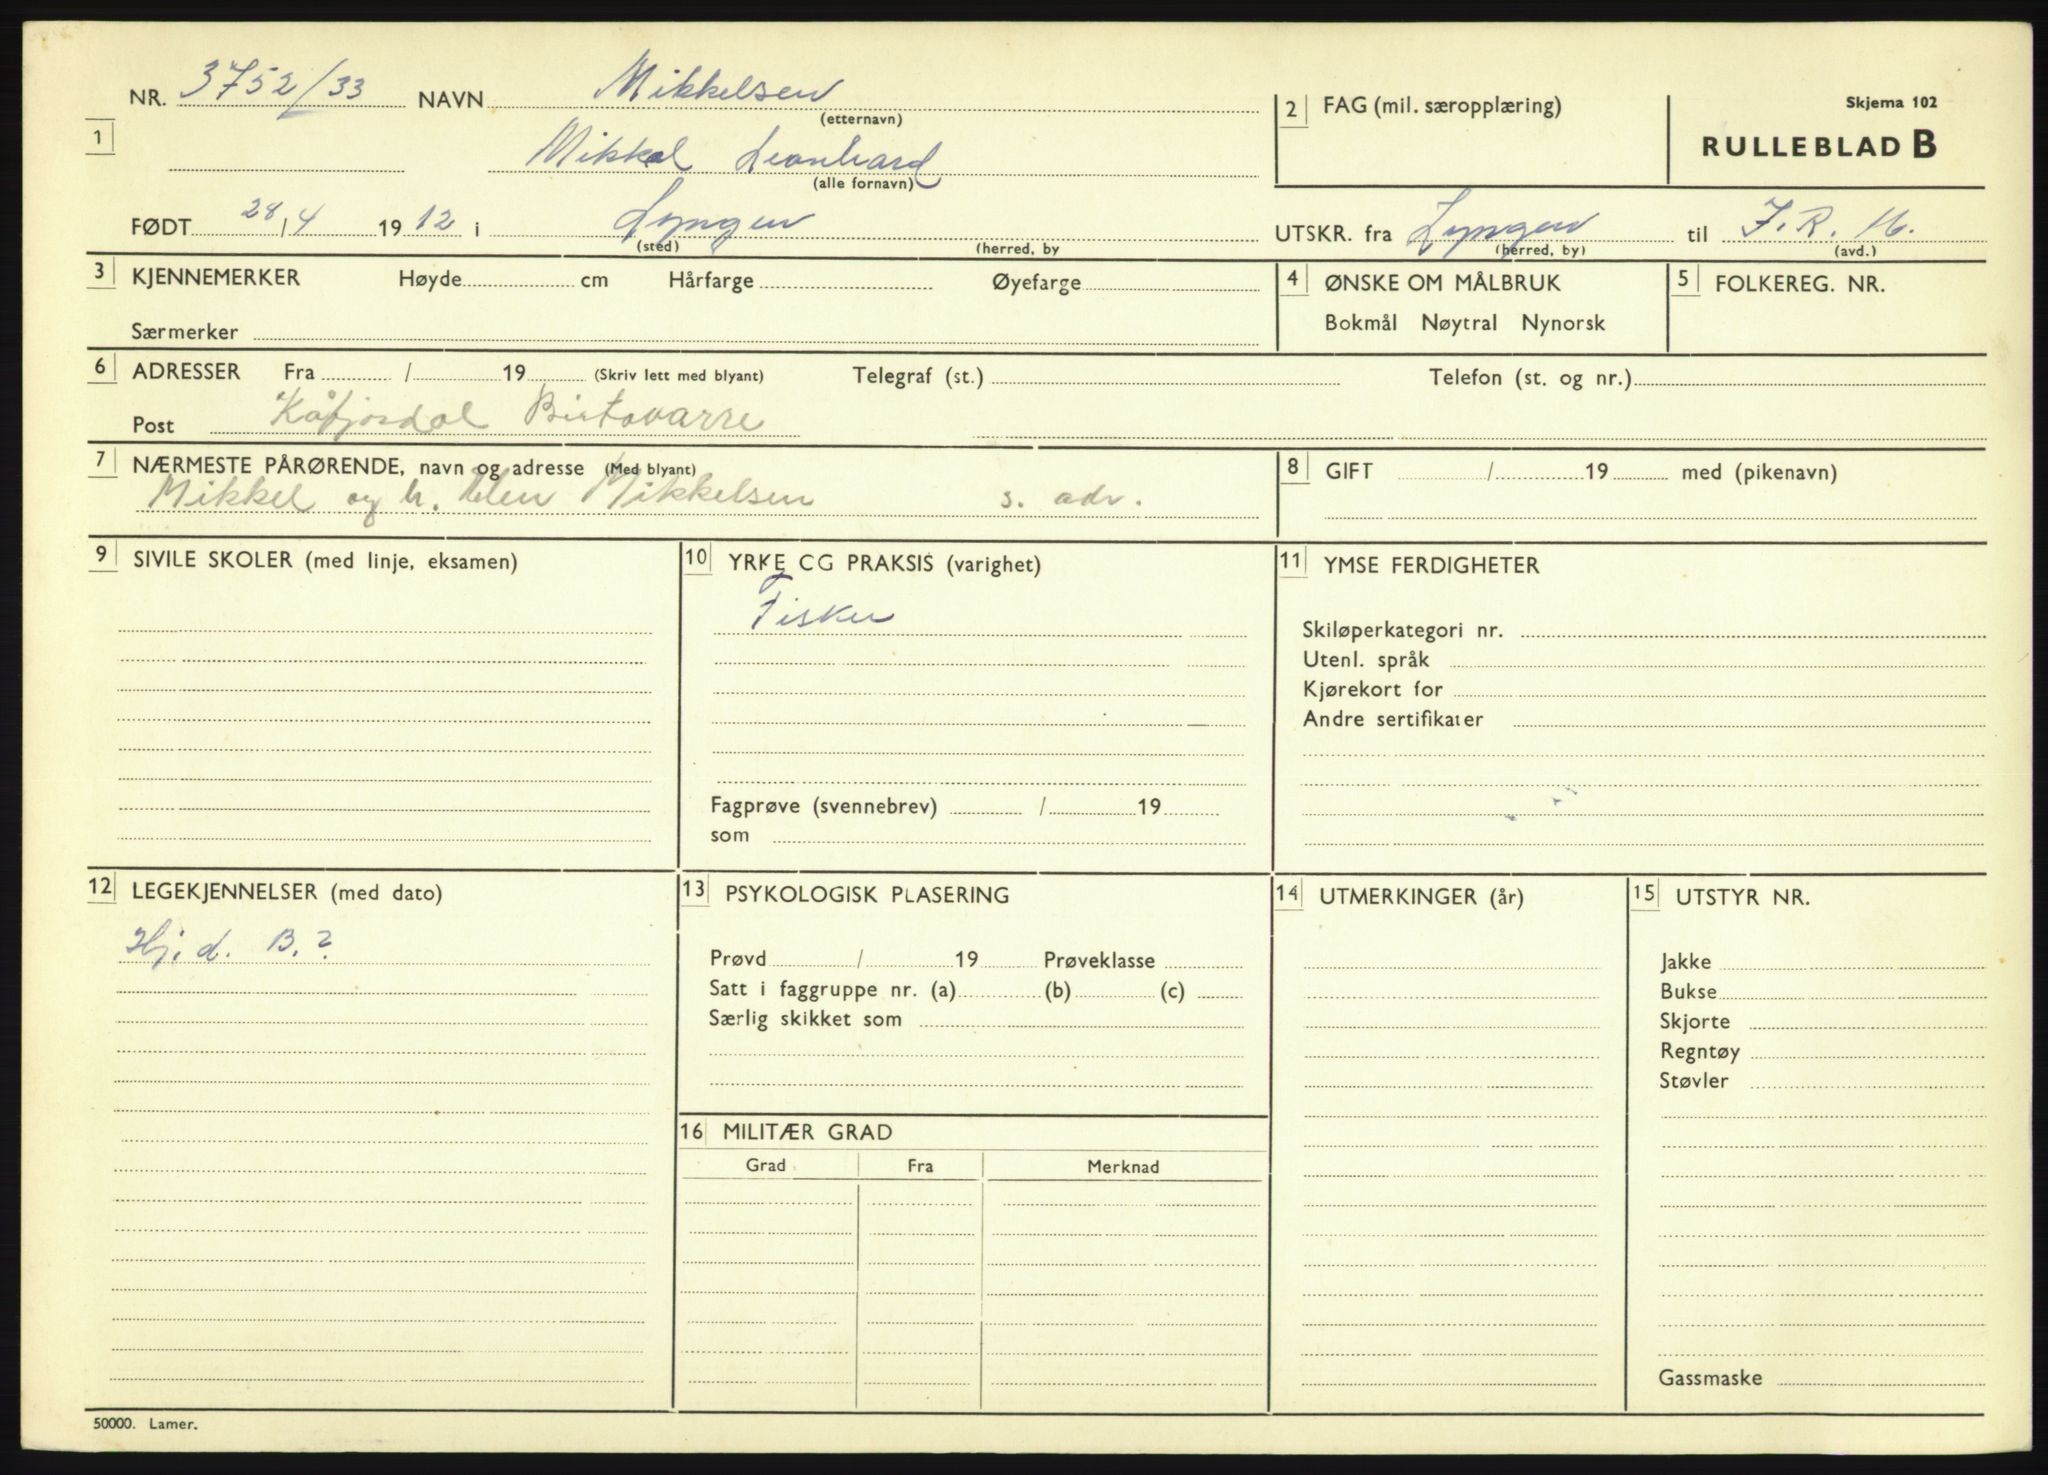 NR. 3752/33 NAVN Mikkelsen
(etternavn)
1
Mikkal Leonhard
(alle fornavn)
FØDT 28/4 1912 i Lyngen
(sted) (herred, by
2 FAG (mil. særopplæring)
Skjema 102
RULLEBLAD B
UTSKR. fra Lyngen til I.R. 16.
(herred, by) (avd.)
3 KJENNEMERKER Høyde cm Hårfarge Øyefarge
Særmerker
4 ØNSKE OM MÅLBRUK
Bokmål Nøytral Nynorsk
5 FOLKEREG. NR.
6 ADRESSER Fra / 19 (Skriv lett med blyant) Telegraf (st.) Telefon (st. og nr.)
Post Kåfjordal Birtavarre
7 NÆRMESTE PÅRØRENDE, navn og adresse (Med blyant)
Mikkel og h. Elen Mikkelsen s. adr.
8 GIFT / 19 med (pikenavn)
9 SIVILE SKOLER (med linje, eksamen)
10 YRKE CG PRAKSIS (varighet)
Fisker
Fagprøve (svennebrev) / 19
som
11 YMSE FERDIGHETER
Skiløperkategori nr.
Utenl. språk
Kjørekort for
Andre sertifikater
12 LEGEKJENNELSER (med dato)
Hj. d. B. ?
13 PSYKOLOGISK PLASERING
Prøvd / 19 Prøveklasse
Satt i faggruppe nr. (a) (b) (c)
Særlig skikket som
14 UTMERKINGER (år)
15 UTSTYR NR.
Jakke
Bukse
Skjorte
Regntøy
Støvler
Gassmaske
16 MILITÆR GRAD
Grad Fra Merknad
50000. Lamer.